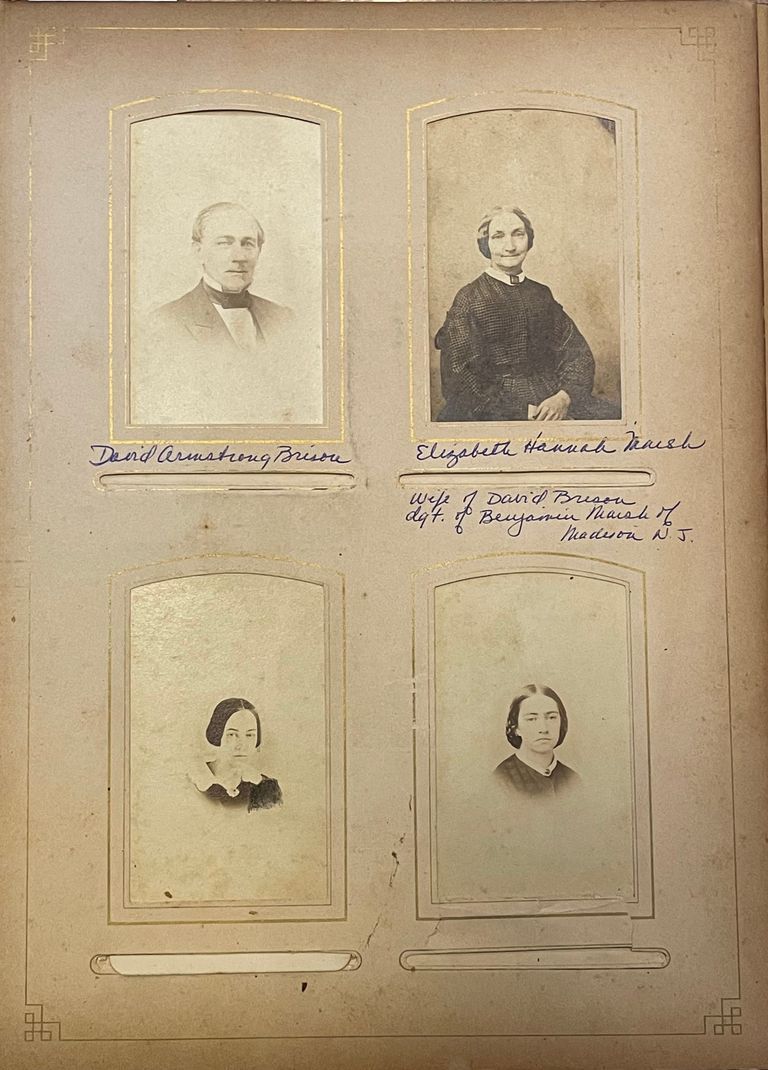 David Armstrong Brison
Elizabeth Hannah Marsh
Wife of David Brison
dgt. of Benjamin Marsh of
Madison N.J.